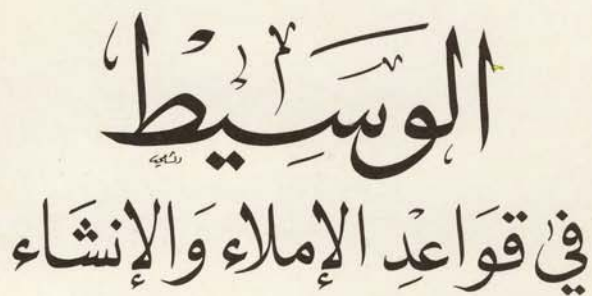 الوَسِيط
في قَوَاعِدِ الإملاء وَالإنشَاء